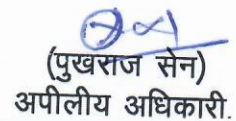 (पुखराज सेन)
अपीलीय अधिकारी.